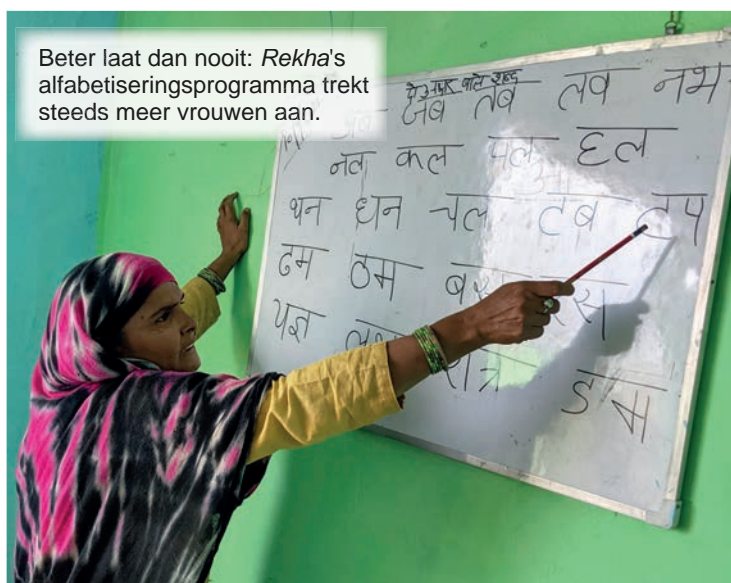 Beter laat dan nooit: Rekha's
alfabetiseringsprogramma trekt
steeds meer vrouwen aan.
दो अक्षर वाले शब्द
जब तब लव नभ
नल कल पल हल
थन धन चल टब टप
ढम ठम बस रस
यज्ञ
डम